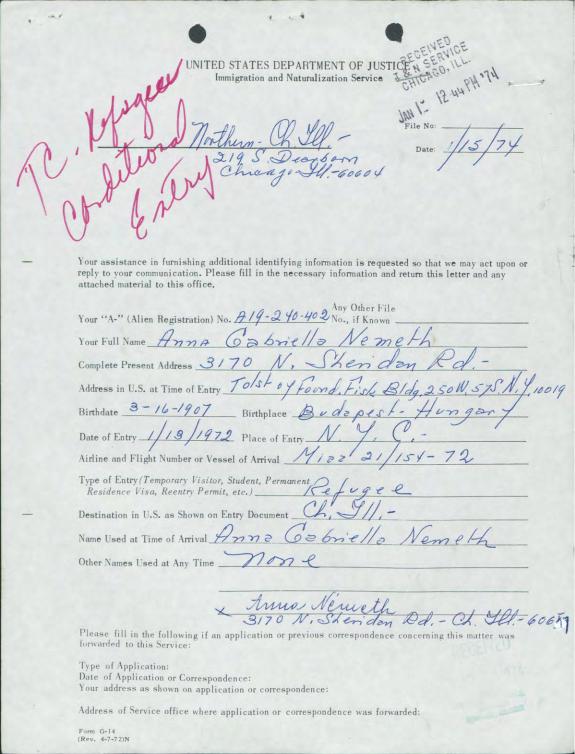 UNITED STATES DEPARTMENT OF JUSTICE
Immigration and Naturalization Service
RECEIVED
I & N SERVICE
CHICAGO, ILL.
12 44 PM '74
TC. Refugee
Conditional
Entry
Northern - Ch Ill -
219 S. Dearborn
Chicago Ill - 60604
File No:
Date: 1/15/74
Your assistance in furnishing additional identifying information is requested so that we may act upon or
reply to your communication. Please fill in the necessary information and return this letter and any
attached material to this office.
Your "A-" (Alien Registration) No. A19-240-402 Any Other File No., if Known
Your Full Name Anna Gabriella Nemeth
Complete Present Address 3170 N. Sheridan Rd. -
Address in U.S. at Time of Entry Tolstoy Found. Fisk Bldg, 250 W. 57 S. N.Y. 10019
Birthdate 3-16-1907 Birthplace Budapest - Hungary
Date of Entry 1/13/1972 Place of Entry N. Y. C. -
Airline and Flight Number or Vessel of Arrival 21/154-72
Type of Entry (Temporary Visitor, Student, Permanent
Residence Visa, Reentry Permit, etc.) Refugee
Destination in U.S. as Shown on Entry Document Ch. Ill. -
Name Used at Time of Arrival Anna Gabriella Nemeth
Other Names Used at Any Time None
x Anna Németh
3170 N. Sheridan Rd. - Ch. Ill. - 60657
Please fill in the following if an application or previous correspondence concerning this matter was
forwarded to this Service:
Type of Application:
Date of Application or Correspondence:
Your address as shown on application or correspondence:
Address of Service office where application or correspondence was forwarded:
Form G-14
(Rev. 4-7-72)N